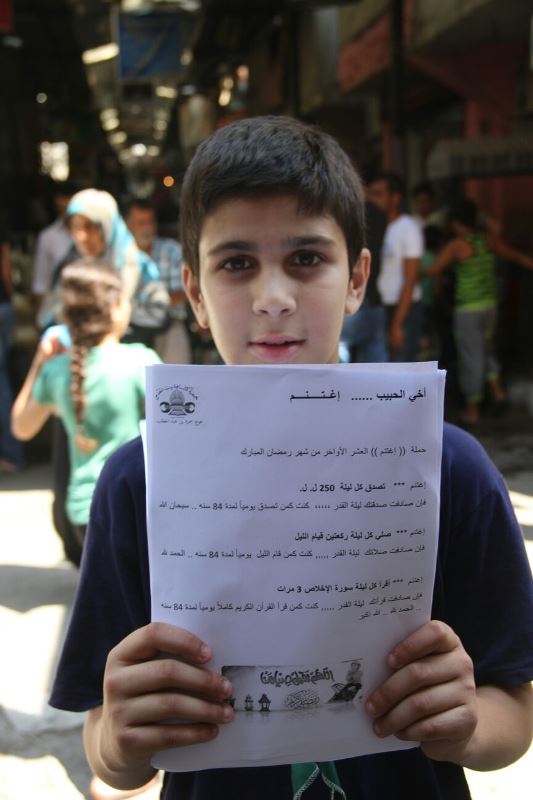 أخي الحبيب ...... إغـتـنـم
حملة (( إغتنم )) العشر الأواخر من شهر رمضان المبارك
إغتنم *** تصدق كل ليلة 250 ل.ل.
فإن صادفت صدقتك ليلة القدر ..... كنت كمن تصدق يومياً لمدة 84 سنه .. سبحان الله
إغتنم *** صلي كل ليلة ركعتين قيام الليل
فإن صادفت صلاتك ليلة القدر ..... كنت كمن قام الليل يومياً لمدة 84 سنه .. الحمد لله
إغتنم *** إقرأ كل ليلة سورة الإخلاص 3 مرات
فإن صادفت قرأتك ليلة القدر ..... كنت كمن قرأ القرآن الكريم كاملاً يومياً لمدة 84 سنه
.. الحمد لله .. الله اكبر
اللهم تقبل صيامنا